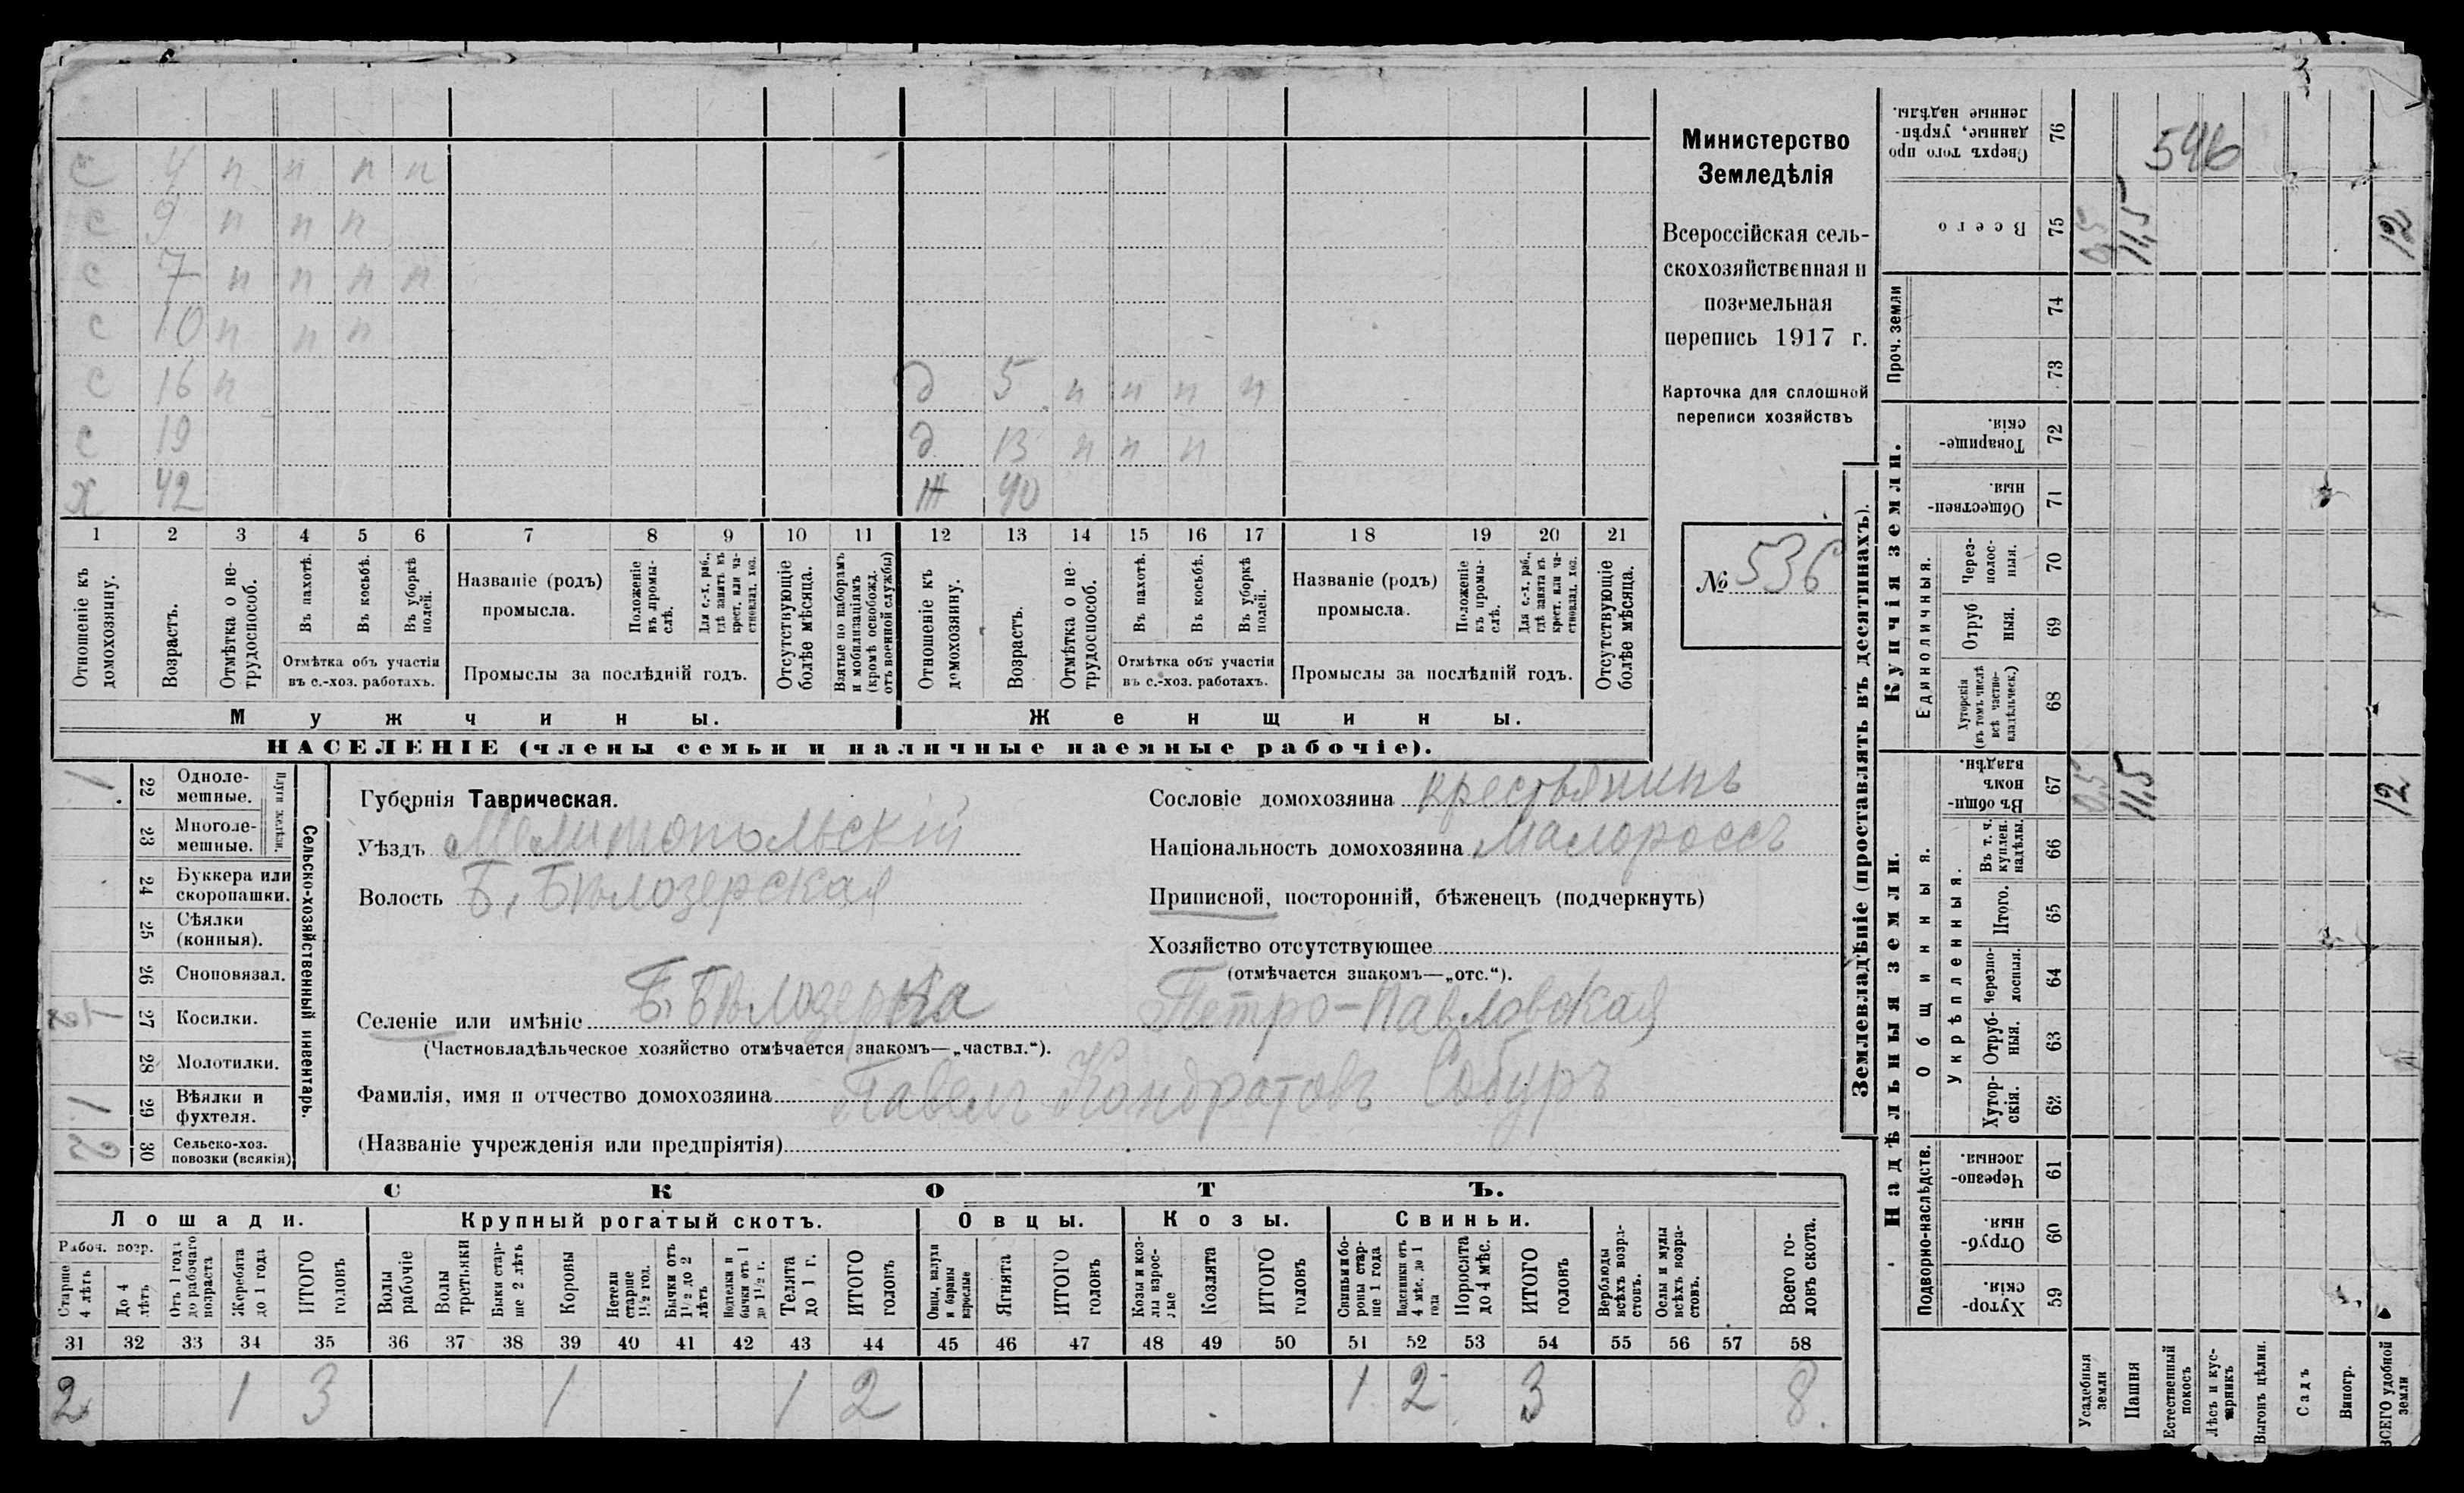 с 4 п п п п
с 9 п п п
с 7 п п п п
с 10 п п п
с 16 п
с 19
х 42
д 5 п п п п
д 13 п п п
ж 40
1 2 3 4 5 6 7 8 9 10 11 12 13 14 15 16 17 18 19 20 21
Отношеніе къ домохозяину.
Возрастъ.
Отмѣтка о не-
трудоспособ.
Въ пахотѣ.
Въ косьбѣ.
Въ уборкѣ
полей.
Отмѣтка объ участіи
въ с.-хоз. работахъ.
Названіе (родъ)
промысла.
Положеніе
въ промы-
слѣ.
Для с.-х. раб.,
гдѣ занятъ въ
крест. или ча-
стновлад. хоз.
Промыслы за послѣдній годъ.
Отсутствующіе
болѣе мѣсяца.
Взятые по наборамъ
и мобилизаціямъ
(кромѣ освобожд.
отъ военной службы)
Отношеніе къ
домохозяину.
Возрастъ.
Отмѣтка о не-
трудоспособ.
Въ пахотѣ.
Въ косьбѣ.
Въ уборкѣ
полей.
Отмѣтка объ участіи
въ с.-хоз. работахъ.
Названіе (родъ)
промысла.
Положеніе
въ промы-
слѣ.
Для с.-х. раб.,
гдѣ занята въ
крест. или ча-
стновлад. хоз.
Промыслы за послѣдній годъ.
Отсутствующіе
болѣе мѣсяца.
Мужчины.
Женщины.
НАСЕЛЕНІЕ (члены семьи и наличные наемные рабочіе).
Министерство
Земледѣлія
Всероссійская сель-
скохозяйственная и
поземельная
перепись 1917 г.
Карточка для сплошной
переписи хозяйствъ
№ 536
1
22 Одноле-
мешные.
23 Многоле-
мешные.
Плуги желѣзн.
24 Буккера или
скоропашки.
25 Сѣялки
(конныя).
26 Сноповязал.
27 Косилки.
28 Молотилки.
1
29 Вѣялки и
фухтеля.
2
30 Сельско-хоз.
повозки (всякія)
Сельско-хозяйственный инвентарь.
Губернія Таврическая.
Уѣздъ Мелитопольскій
Волость Б. Бѣлозерская
Селеніе или имѣніе Б. Бѣлозерка Петро-Павловская
(Частновладѣльческое хозяйство отмѣчается знакомъ—„частвл.“).
Фамилія, имя и отчество домохозяина Павелъ Кондратовъ Собуръ
(Названіе учрежденія или предпріятія)
Сословіе домохозяина крестьянинъ
Національность домохозяина малороссъ
Приписной, посторонній, бѣженецъ (подчеркнуть)
Хозяйство отсутствующее
(отмѣчается знакомъ—„отс.“).
СКОТЪ.
Лошади. Крупный рогатый скотъ. Овцы. Козы. Свиньи.
Рабоч. возр.
Старше
4 лѣтъ
До 4
лѣтъ
Отъ 1 года
до рабочаго
возраста
Жеребята
до 1 года
ИТОГО
головъ
Волы
рабочіе
Волы
третьяки
Быки стар-
ше 2 лѣтъ
Коровы
Нетели
старше
1½ год.
Бычки отъ
1½ до 2
лѣтъ
Нотелки и
бычки отъ 1
до 1½ г.
Телята
до 1 г.
ИТОГО
головъ
Овцы, валухи
и бараны
взрослые
Ягнята
ИТОГО
головъ
Козы и коз-
лы взрос-
лые
Козлята
ИТОГО
головъ
Свиньи и бо-
ровы стар-
ше 1 года
Подсвинки отъ
4 мѣс. до 1
года
Поросята
до 4 мѣс.
ИТОГО
головъ
Верблюды
всѣхъ возра-
стовъ.
Ослы и мулы
всѣхъ возра-
стовъ.
Всего го-
ловъ скота.
31 32 33 34 35 36 37 38 39 40 41 42 43 44 45 46 47 48 49 50 51 52 53 54 55 56 57 58
2 1 3 1 1 2 1 2 3 8
Землевладѣніе (проставлять въ десятинахъ).
546
Сверхъ того про
данные, укрѣп-
ленные надѣлы.
76
Всего
75
0,5
11,5
12
Проч. земли
74
73
Купчія земли.
Товарище-
скія.
72
Обществен-
ныя.
71
Единоличныя.
Через-
полос-
ныя.
70
Отруб
ныя.
69
Хуторскія
(въ томъ числѣ
всѣ частно-
владѣльческ.)
68
Надѣльныя земли.
Общинныя.
Въ общи-
номъ
владѣн.
67
0,5
11,5
12
Укрѣпленныя.
Въ т. ч.
куплен.
надѣлы.
66
Итого.
65
Черезпо-
лосныя.
64
Отруб-
ныя.
63
Хутор-
скія.
62
Подворно-наслѣдств.
Черезпо-
лосныя.
61
Отруб-
ныя.
60
Хутор-
скія.
59
Усадебныя
земли
Пашня
Естественный
покосъ
Лѣсъ и кус-
тарникъ
Выгонъ цѣлин.
Садъ
Виногр.
ВСЕГО удобной
земли